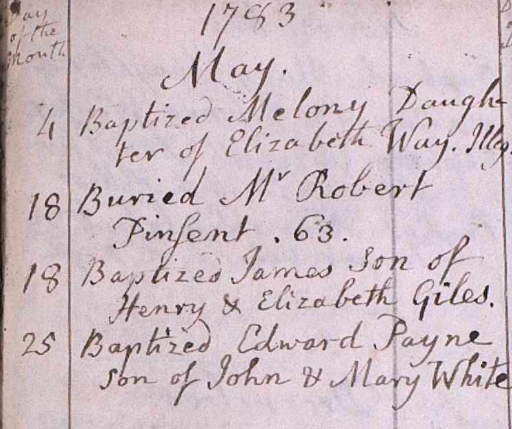 1783
Day
of the
Month
May.
4 Baptized Melony Daugh-
ter of Elizabeth Way. Illeg.
18 Buried Mr Robert
Pinsent . 63.
18 Baptized James Son of
Henry & Elizabeth Giles.
25 Baptized Edward Payne
son of John & Mary White